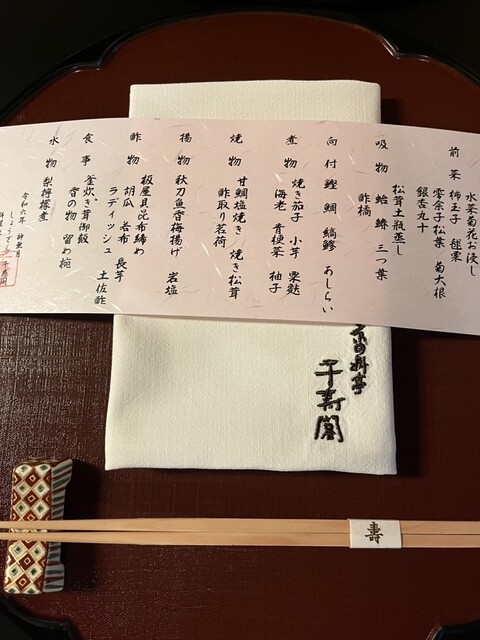 水菜菊花お浸し
前菜 柿玉子 毬栗
零余子松葉 菊大根
銀杏九十
松茸土瓶蒸し
吸物 蛤 鱧 三つ葉
酢橘
向付 鰹 鯛 縞鯵 あしらい
煮物 焼き茄子 小芋 栗麩
海老 青梗菜 柚子
焼物 甘鯛塩焼き 焼き松茸
酢取り茗荷
揚物 秋刀魚香梅揚げ 岩塩
酢物 板屋貝昆布締め
胡瓜 若布 長芋
ラディッシュ 土佐酢
食事 釜炊き茸御飯
香の物 留め椀
水物 梨檸檬煮
令和六年 神無月
料亭
千寿閣
壽